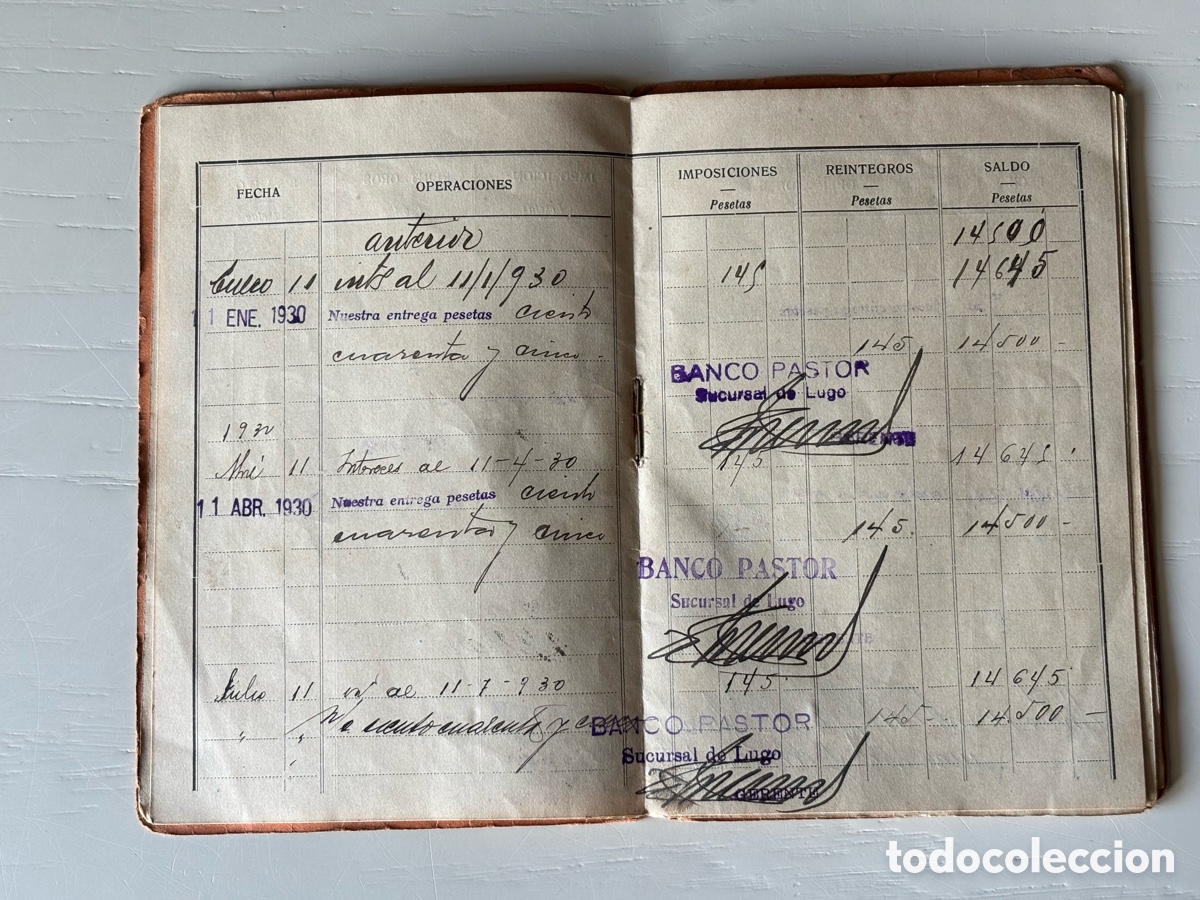 FECHA OPERACIONES IMPOSICIONES REINTEGROS SALDO
Pesetas Pesetas Pesetas
anterior 14500
Enero 11 ints al 11/1/930 145 14645
11 ENE. 1930 Nuestra entrega pesetas ciento
cuarenta y cinco 145 14500 -
BANCO PASTOR
Sucursal de Lugo
GERENTE
1930
Abril 11 Intereses al 11-4-30 145 14645
11 ABR. 1930 Nuestra entrega pesetas ciento
cuarenta y cinco 145. 14500 -
BANCO PASTOR
Sucursal de Lugo
Julio 11 al 11-7-930 145 14645
" " ciento cuarenta y 145- 14500 -
BANCO PASTOR
Sucursal de Lugo
GERENTE
todocoleccion